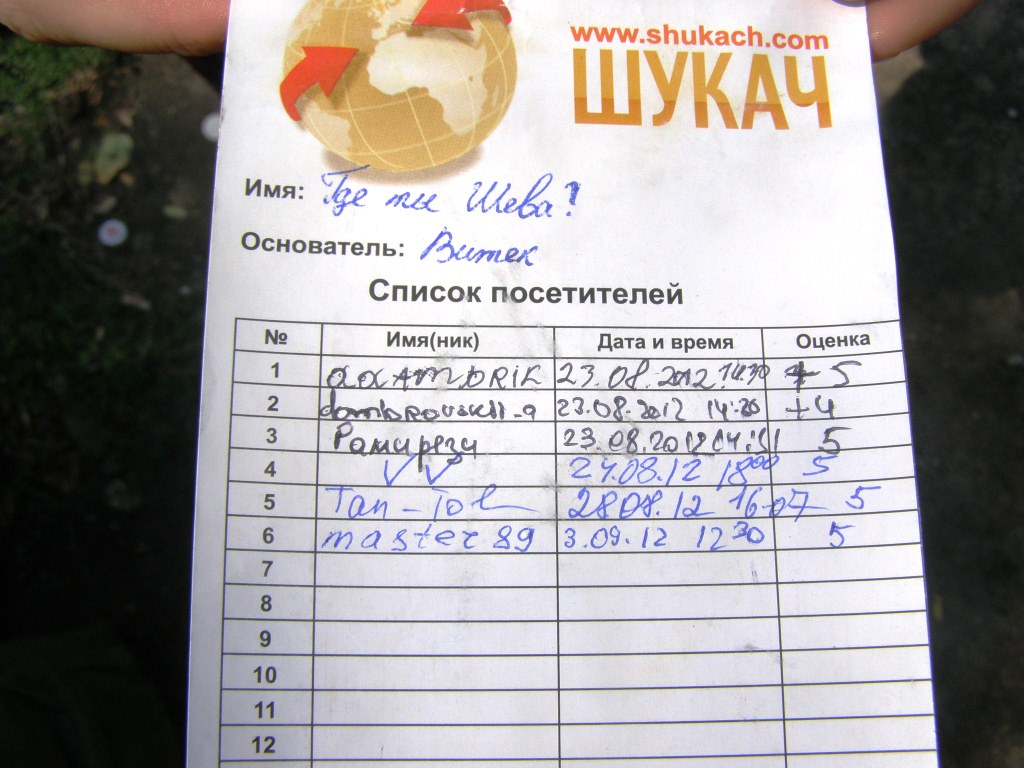 www.shukach.com
ШУКАЧ
Имя: Где ты Шева?
Основатель: Витек
Список посетителей
№ Имя(ник) Дата и время Оценка
1 23.08.2012 14:30 + 5
2 dombrovskii_a 23.08.2012 14:30 +4
3 Рамирези 23.08.2012 14:31 5
4 VV 27.08.12 18 00 5
5 Tan-Tol 28.08.12 16-07 5
6 master 89 3.09.12 12 30 5
7
8
9
10
11
12